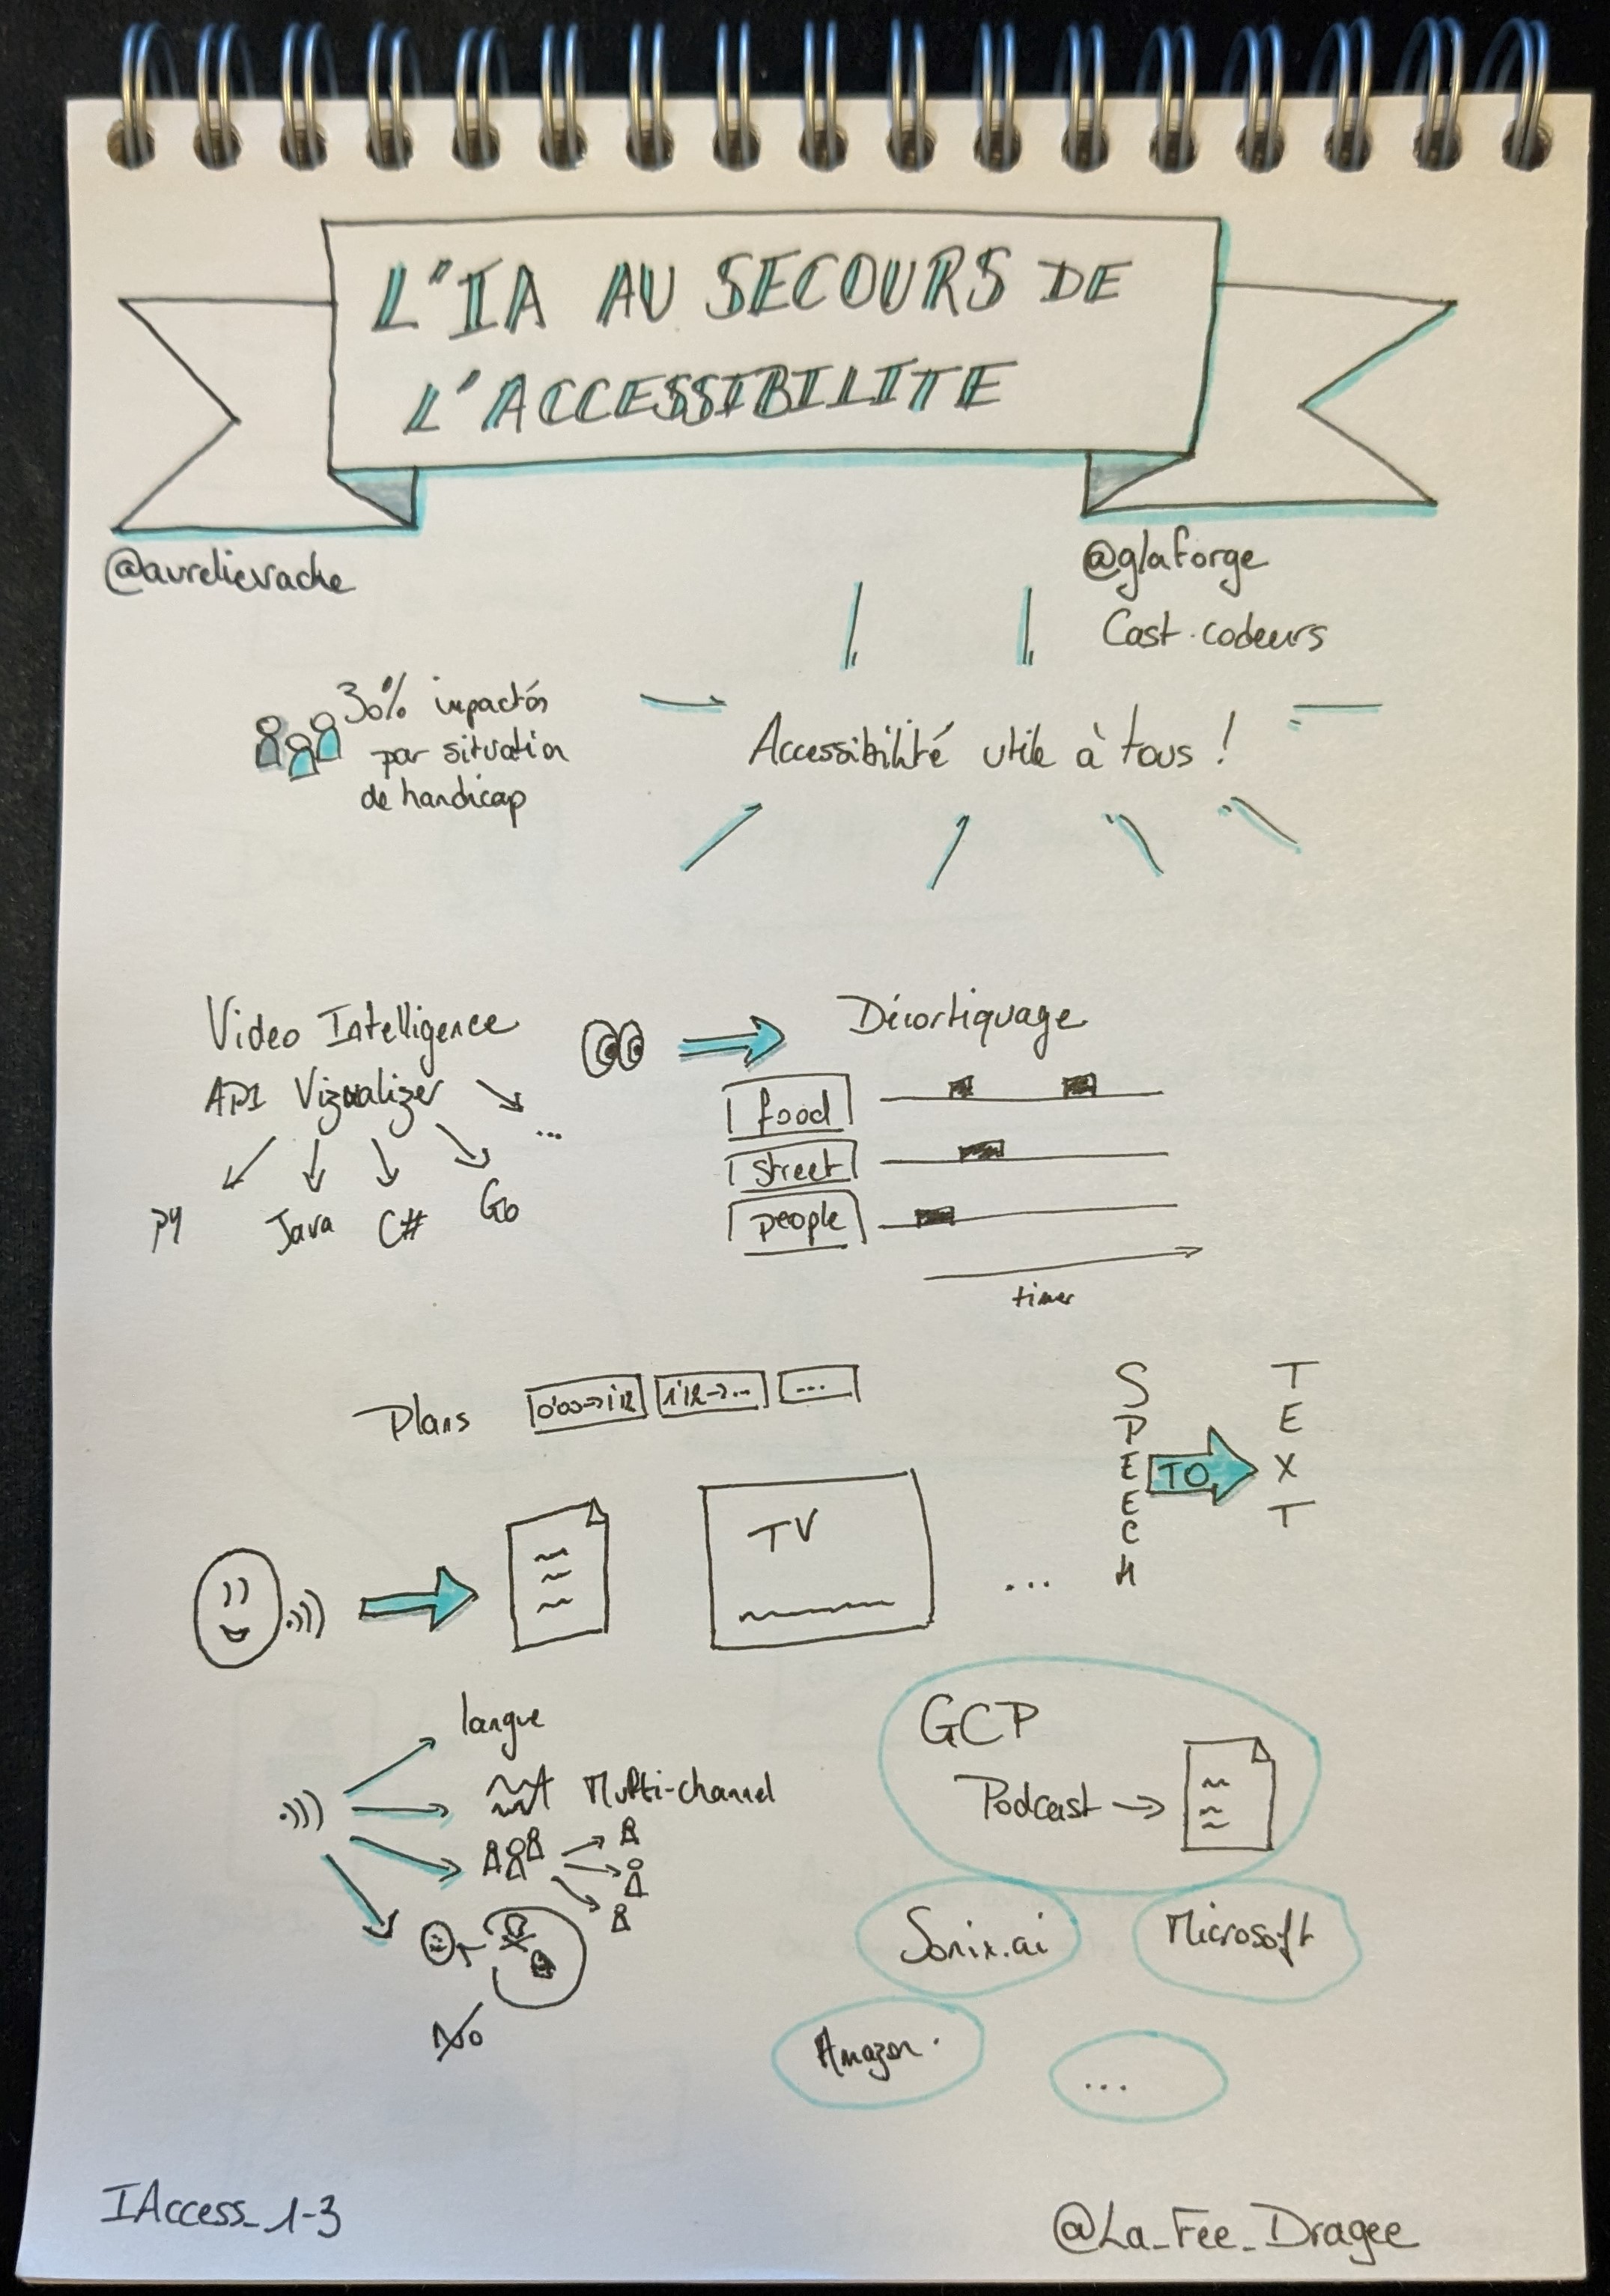 L'IA AU SECOURS DE
L'ACCESSIBILITE
@aurelievache
@glaforge
Cast codeurs
30% impactés
par situation
de handicap
Accessibilité utile à tous !
Video Intelligence
API Vizualizer
...
py
Java
C#
Go
Décortiquage
food
street
people
timer
Plans
0'00->1'12
1'12->...
...
SPEECH
TO
TEXT
TV
...
langue
Multi-channel
No
GCP
Podcast
Sonix.ai
Microsoft
Amazon.
...
IAccess_1-3
@La_Fee_Dragee